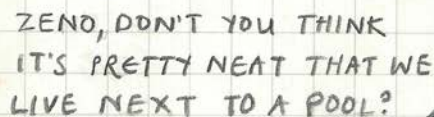 ZENO, DON'T YOU THINK
IT'S PRETTY NEAT THAT WE
LIVE NEXT TO A POOL?